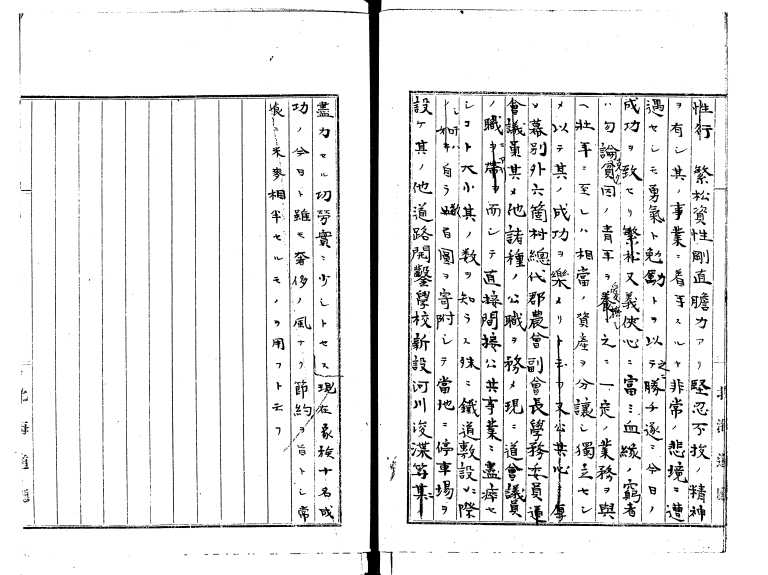 性行 繁松資性剛直膽力アリ堅忍不抜ノ精神
ヲ有シ其ノ事業ニ着手スルヤ非常ノ悲境ニ遭
遇セシモ勇氣ト勉勵トヲ以テ之ニ勝チ遂ニ今日ノ
成功ヲ致セリ繁松又義俠心ニ富ミ血縁ノ窮者
ハ勿論貧困ノ青年ヲ養ヒ之ニ一定ノ業務ヲ與
ヘ壯年ニ至レハ相當ノ資産ヲ分讓シ獨立セシ
メ以テ其ノ成功ヲ樂メリト云フ又公共心ニ厚
ク幕別外六箇村總代郡農會副會長學務委員道
會議員其ノ他諸種ノ公職ヲ務メ現ニ道會議員
ノ職ヲ帶ヲ而シテ直接間接公共事業ニ盡瘁セ
シコト大小其ノ數ヲ知ラス殊ニ鐵道敷設ニ際
シ自ラ ヲ寄附シテ當地ニ停車場ヲ
設ケ其ノ他道路開鑿學校新設河川浚渫等其
盡力セル功勞實ニ少シトセス現在家族十名成
功ノ今日ト雖モ奢侈ノ風ナク節約ヲ旨トシ常
食ハ米麥相半セルモノヲ用フト云フ
北海道廳